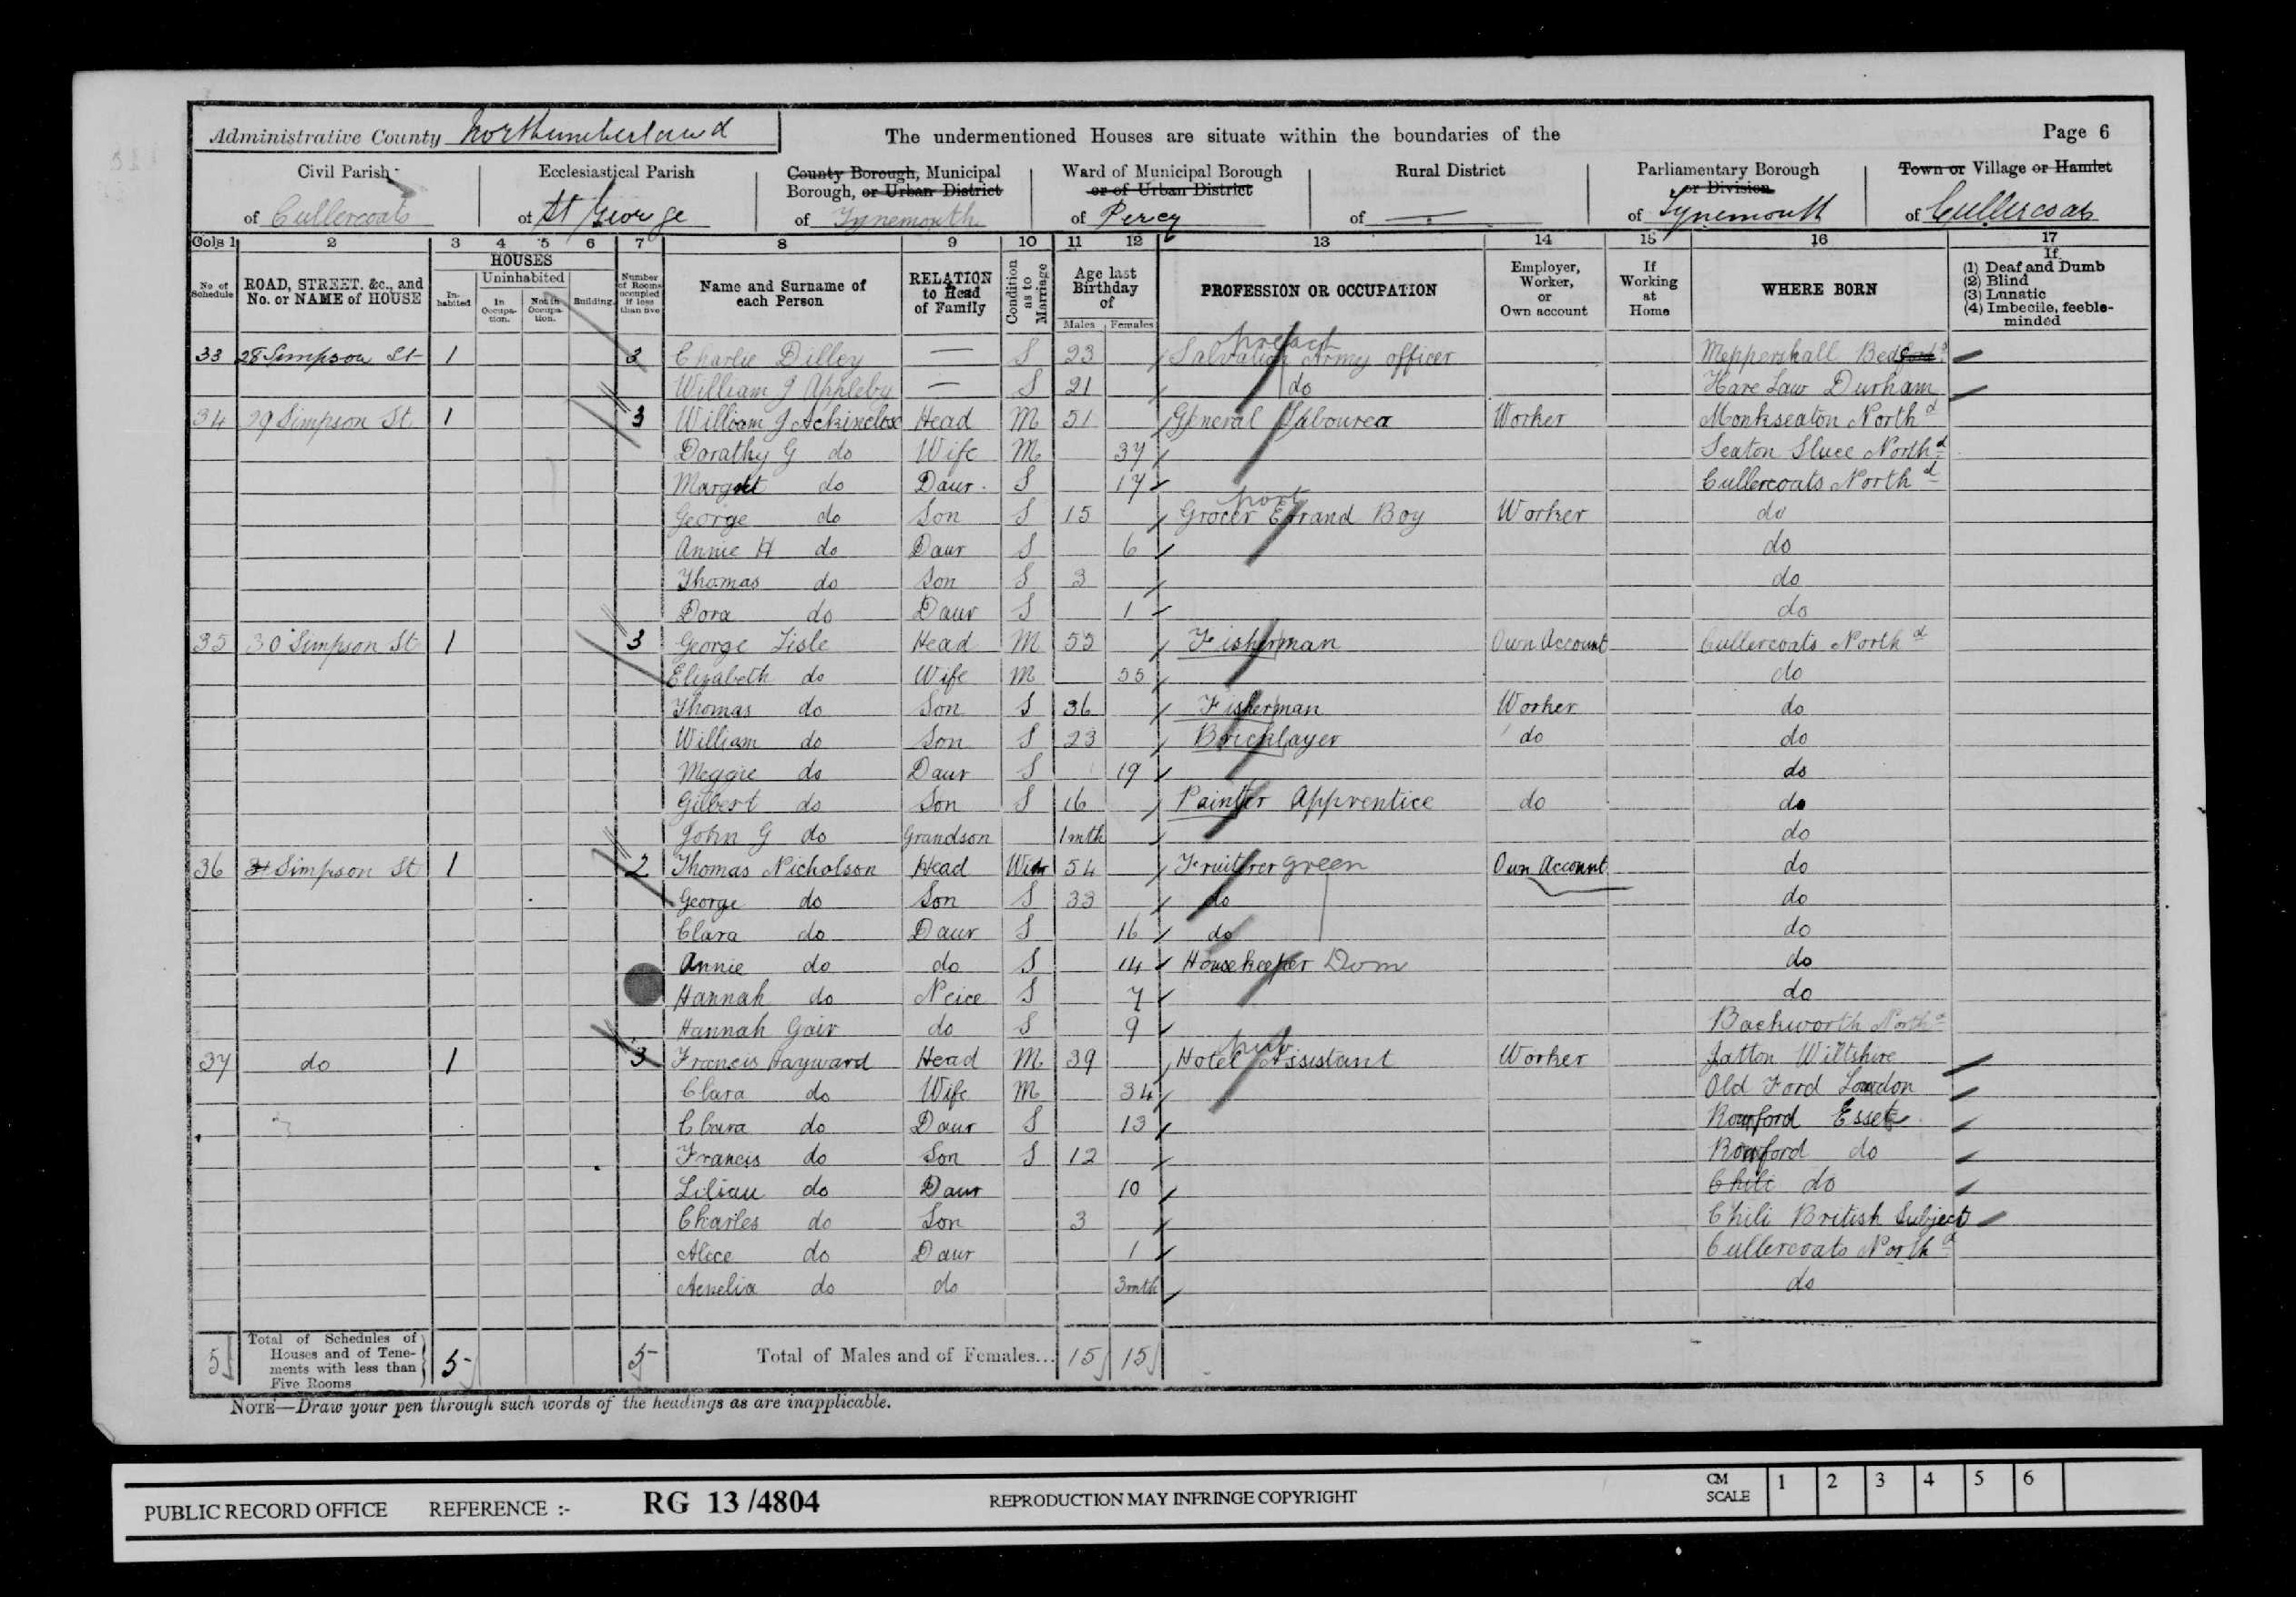 Administrative County Northumberland
The undermentioned Houses are situate within the boundaries of the
Page 6
Civil Parish of Cullercoats
Ecclesiastical Parish of St George
County Borough, Municipal Borough, or Urban District of Tynemouth
Ward of Municipal Borough or of Urban District of Percy
Rural District of —
Parliamentary Borough or Division of Tynemouth
Town or Village or Hamlet of Cullercoats
Cols 1 2 3 4 5 6 7 8 9 10 11 12 13 14 15 16 17
No. of Schedule
ROAD, STREET, &c., and No. or NAME of HOUSE
HOUSES
Inhabited
Uninhabited
In Occupation.
Not in Occupation.
Building.
Number of Rooms occupied if less than five
Name and Surname of each Person
RELATION to Head of Family
Condition as to Marriage
Age last Birthday of
Males Females
PROFESSION OR OCCUPATION
Employer, Worker, or Own account
If Working at Home
WHERE BORN
If
(1) Deaf and Dumb
(2) Blind
(3) Lunatic
(4) Imbecile, feeble-minded
33 28 Simpson St 1 3 Charlie Dilley — S 23 Salvation Army officer preach Meppershall Bedford
William J Appleby — S 21 do Hare Law Durham
34 29 Simpson St 1 3 William J Ackinclose Head M 51 General Labourer Worker Monkseaton North d
Dorathy G do Wife M 37 Seaton Sluce North d
Margret do Daur S 17 Cullercoats North d
George do Son S 15 Grocer Errand Boy port Worker do
Annie H do Daur S 6 do
Thomas do Son S 3 do
Dora do Daur S 1 do
35 30 Simpson St 1 3 George Lisle Head M 55 Fisherman Own Account Cullercoats North d
Elizabeth do Wife M 55 do
Thomas do Son S 36 Fisherman Worker do
William do Son S 23 Bricklayer do do
Meggie do Daur S 19 do
Gilbert do Son S 16 Painter Apprentice do do
John G do Grandson 1mth do
36 31 Simpson St 1 2 Thomas Nicholson Head Widr 54 Fruiterer green Own Account do
George do Son S 33 do do
Clara do Daur S 16 do do
Annie do do S 14 Housekeeper Dom do
Hannah do Neice S 7 do
Hannah Gair do S 9 Backworth North d
37 do 1 3 Francis Hayward Head M 39 Hotel Assistant pub Worker Jatton Wiltshire
Clara do Wife M 34 Old Ford London
Clara do Daur S 13 Romford Essex
Francis do Son S 12 Romford do
Lilian do Daur 10 Chili do
Charles do Son 3 Chili British Subject
Alice do Daur 1 Cullercoats North d
Amelia do do 3mth do
5 Total of Schedules of Houses and of Tenements with less than Five Rooms 5 5 Total of Males and of Females... 15 15
NOTE—Draw your pen through such words of the headings as are inapplicable.
PUBLIC RECORD OFFICE REFERENCE :- RG 13 /4804 REPRODUCTION MAY INFRINGE COPYRIGHT CM SCALE 1 2 3 4 5 6